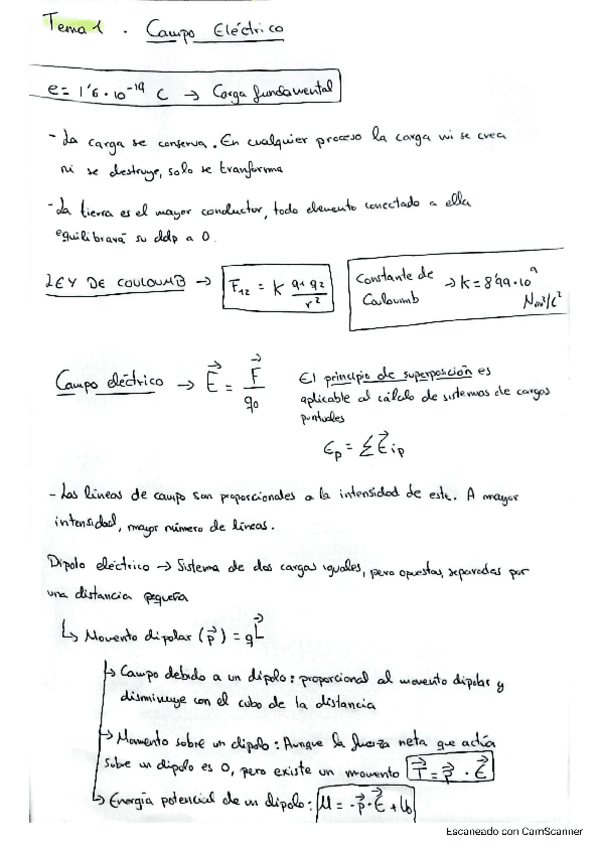 Tema 1 . Campo Eléctrico
e = 1'6 · 10⁻¹⁹ C → Carga fundamental
- La carga se conserva. En cualquier proceso la carga ni se crea
ni se destruye, solo se tranforma
- La tierra es el mayor conductor, todo elemento conectado a ella
equilibrará su ddp a 0.
LEY DE COULOUMB → F₁₂ = K q₁ q₂ / r²
Constante de
Couloumb → K = 8'99 · 10⁹
N m²/C²
Campo eléctrico → E⃗ = F⃗ / q₀
El principio de superposición es
aplicable al cálculo de sistemas de cargas
puntuales
Ep = ΣE⃗ip
- Las líneas de campo son proporcionales a la intensidad de este. A mayor
intensidad, mayor número de líneas.
Dipolo eléctrico → Sistema de dos cargas iguales, pero opuestas, separadas por
una distancia pequeña
↳ Momento dipolar (p⃗) = qL⃗
↳ Campo debido a un dipolo: proporcional al momento dipolar y
disminuye con el cubo de la distancia
↳ Momento sobre un dipolo: Aunque la fuerza neta que actúa
sobre un dipolo es 0, pero existe un momento T⃗ = p⃗ · E⃗
↳ Energía potencial de un dipolo: U = -p⃗ · E⃗ + U₀
Escaneado con CamScanner